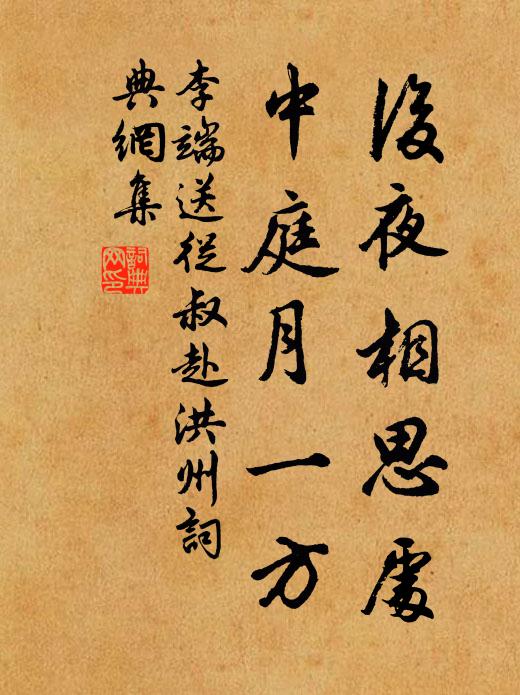 後夜相思處
中庭月一方
李端送從叔赴洪州詞
典網集
詞典
网印